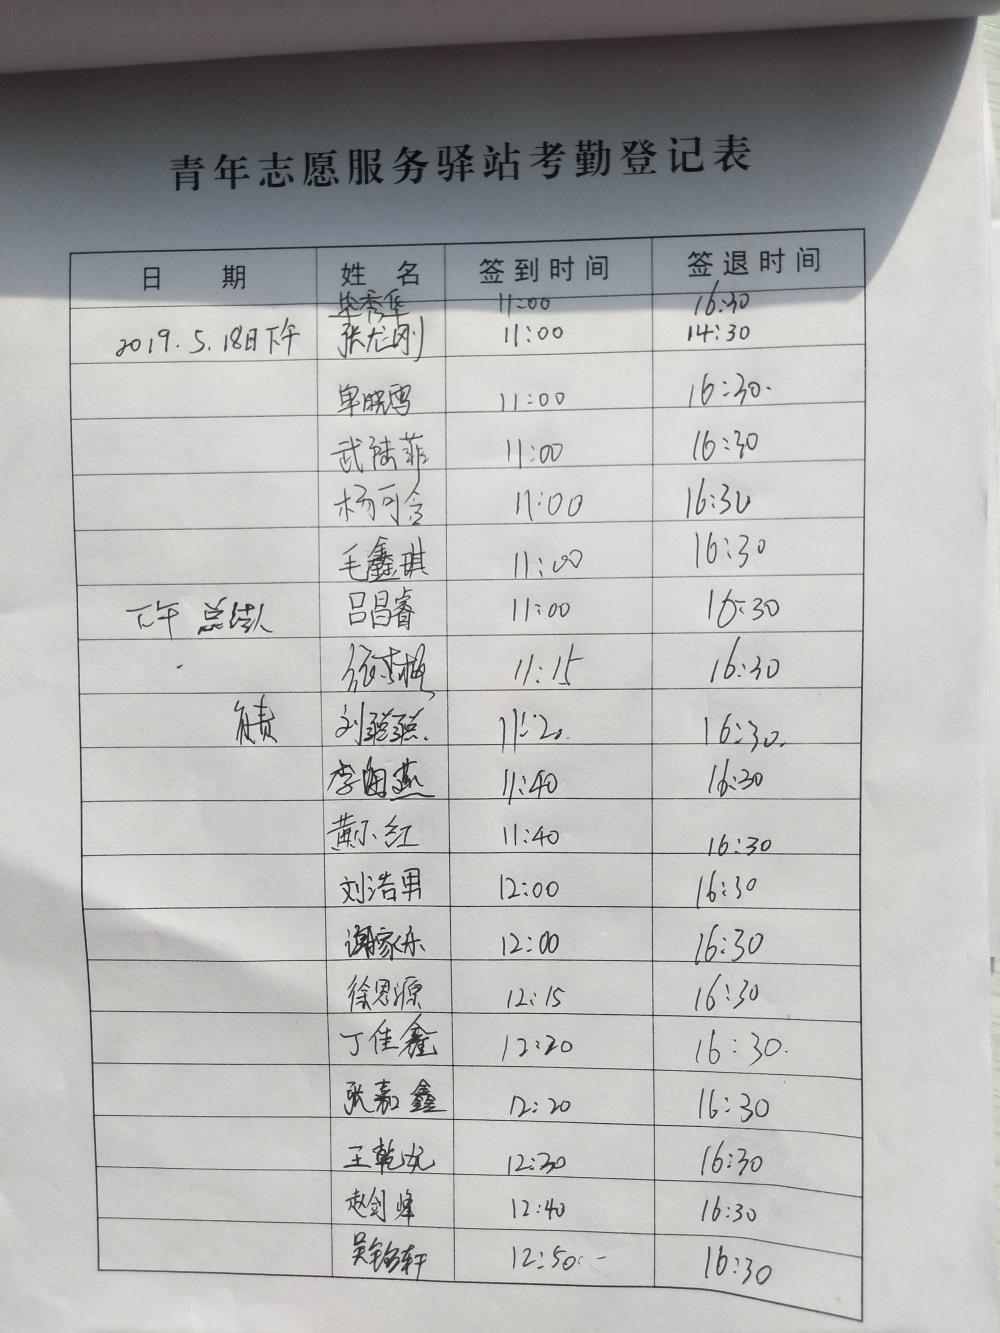 青年志愿服务驿站考勤登记表
日期 姓名 签到时间 签退时间
毕秀华 11:00 16:30
2019.5.18日下午 张龙刚 11:00 14:30
单晓雪 11:00 16:30.
武陆菲 11:00 16:30
杨可含 11:00 16:30
毛鑫琪 11:00 16:30
下午 总 吕昌睿 11:00 16:30
11:15 16:30
负责 刘聪聪. 11:20. 16:30.
李海燕 11:40 16:30
黄小红 11:40 16:30
刘浩男 12:00 16:30
谢家乐 12:00 16:30
徐恩源 12:15 16:30
丁佳鑫 12:20 16:30.
张嘉鑫 12:20 16:30
王乾龙 12:30 16:30
赵剑峰 12:40 16:30
吴铭轩 12:50 16:30